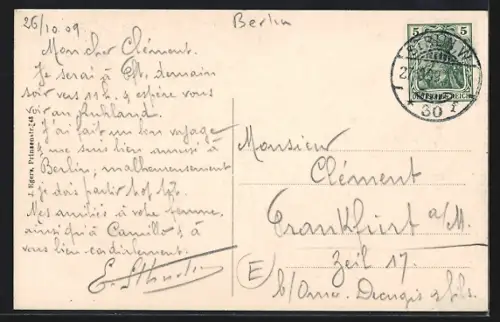 26/10.09
Berlin
Mon cher Clément.
Je serai à Fft. demain
soir vers 11 h. & espère vous
voir au
J'ai fait un bon voyage
me suis bien amusé à
Berlin, malheureusement
je dois partir
Mes amitiés à votre femme
ainsi qu'à Camille & à
vous bien cordialement.
J. Egers, Prinzenstr.
5 5
BERLIN W
DEUTSCHES REICH
30
Monsieur
Clément
Frankfurt a/M.
Zeil 17.
E
b/ & fils.